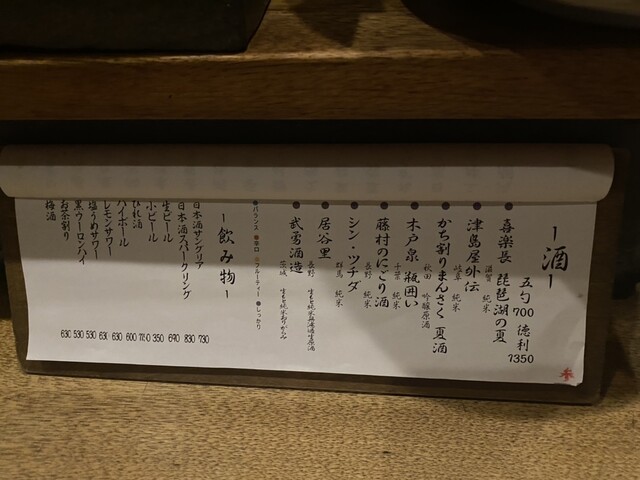 ー酒ー
五勺 700 徳利 1350
喜楽長 琵琶湖の夏
滋賀 純米
津島屋外伝
岐阜 純米
かち割りまんさく 夏酒
秋田 吟醸原酒
木戸泉 瓶囲い
千葉 純米
藤村のにごり酒
長野 純米
シン・ツチダ
群馬 純米
居谷里
長野 生もと純米無濾過生原酒
武勇酒造
茨城 生もと純米おりがらみ
●バランス ●辛口 ●フルーティー ●しっかり
ー飲み物ー
日本酒サングリア 730
日本酒スパークリング 830
生ビール 690
小ビール 350
ひれ酒 780
ハイボール 600
レモンサワー 630
塩うめサワー 630
黒ウーロンハイ 530
お茶割り 530
梅酒 630